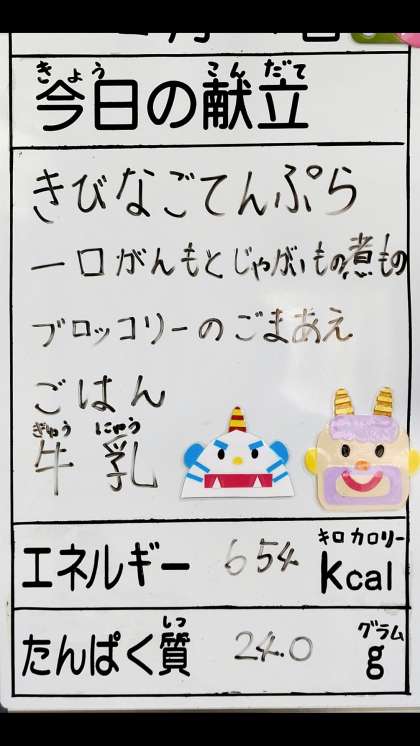 きょう こんだて
今日の献立
きびなごてんぷら
一口がんもとじゃがいもの煮もの
ブロッコリーのごまあえ
ごはん
ぎゅう にゅう
牛 乳
キロカロリー
エネルギー 654 kcal
しつ グラム
たんぱく質 24.0 g